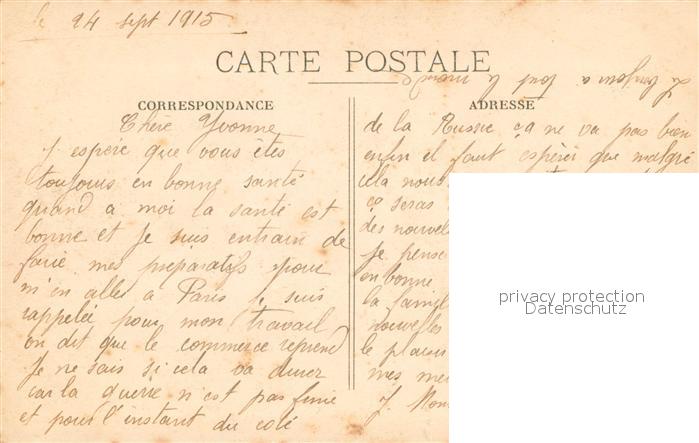 le 24 sept 1915
CARTE POSTALE
Le bonjour a tout le monde
CORRESPONDANCE
Chère Yvonne
J espère que vous êtes
toujours en bonne santé
quand a moi la santé est
bonne et je suis entrain de
faire mes préparatifs pour
m'en aller a Paris je suis
rappelée pour mon travail
on dit que le commerce reprend
Je ne sais si cela va durer
car la guerre n'est pas finie
et pour l'instant du coté
ADRESSE
de la Russie ça ne va pas bien
enfin il faut espérer que malgré
cela nous
ça seras
des nouvel
Je pense
en bonne
la famil
nouvelles
le plaisi
mes mei
J.
privacy protection
Datenschutz